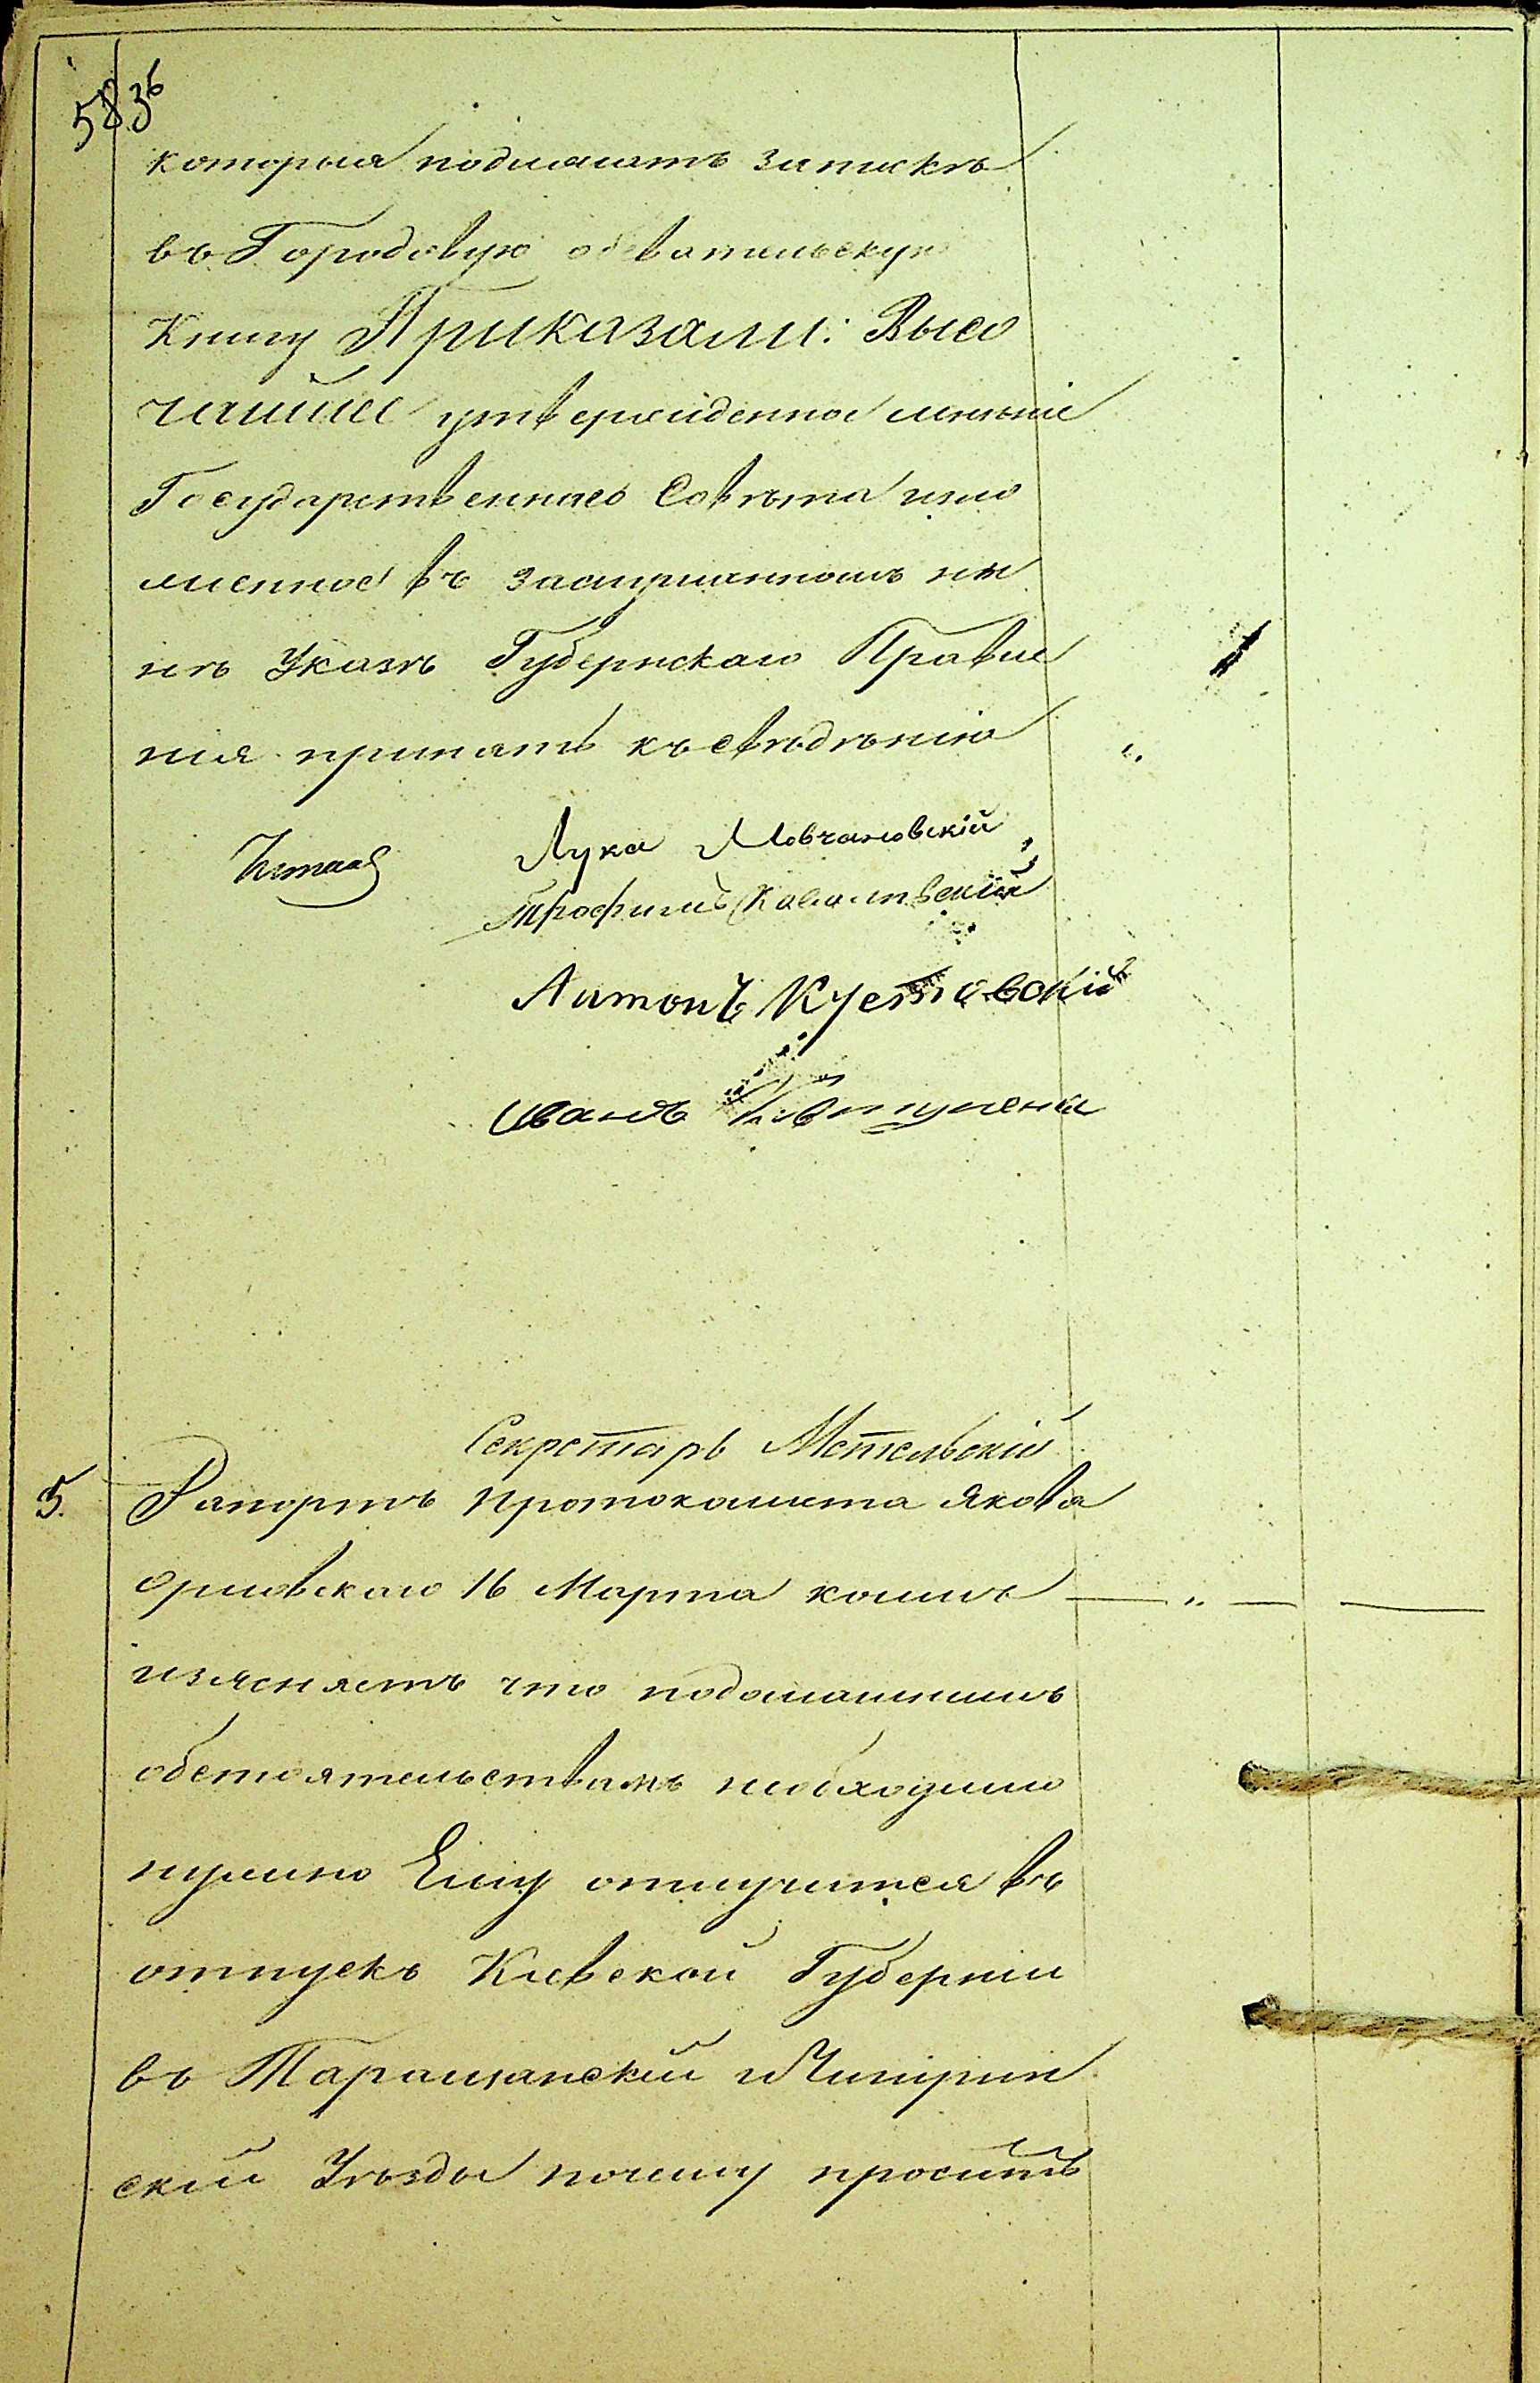 583б
которыя подлежатъ запискѣ
въ Городовую обывательскую
Книгу Приказали: Высо
чайше утвержденное мнѣніе
Государственнаго Совѣта изло
женное въ заслушанномъ ны
нѣ Указѣ Губернскаго Правле
нія принять къ свѣдѣнію
Читалъ
Лука Мовчановскій
Трофимъ
Антонъ Кустовскій
Иванъ
Секретарь Метельскій
5.
Рапортъ протоколиста Якова
Орловскаго 16 Марта коимъ
изясняетъ что подомашнимъ
обстоятельствамъ необходимо
нужно Ему отлучится въ
отпускъ Кіевской Губерніи
въ Таращанскій и Чигирин
скій Уѣзды почему проситъ